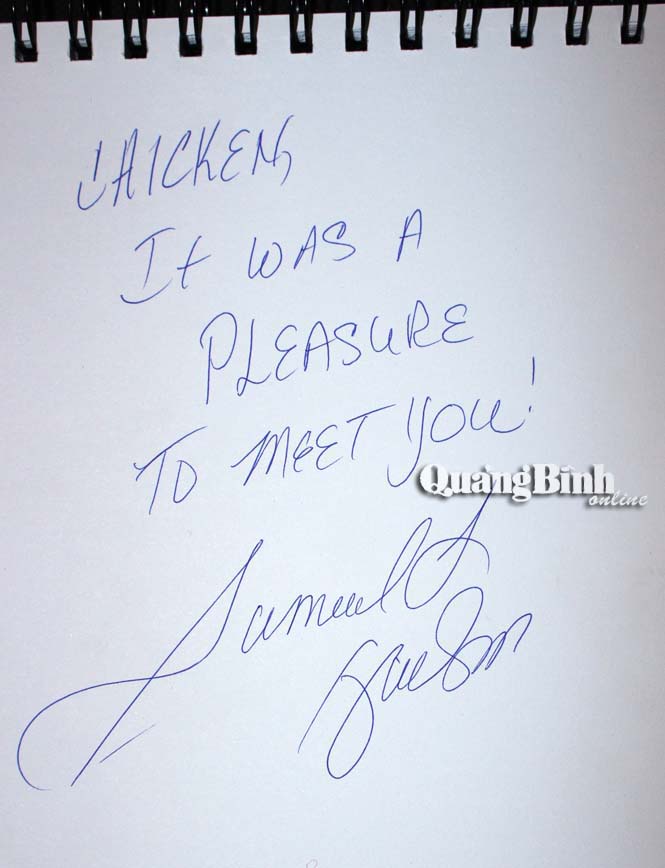 CHICKEN,
It WAS A
PLEASURE
TO MEET YOU!
QuangBình
online
Samuel L
Jackson